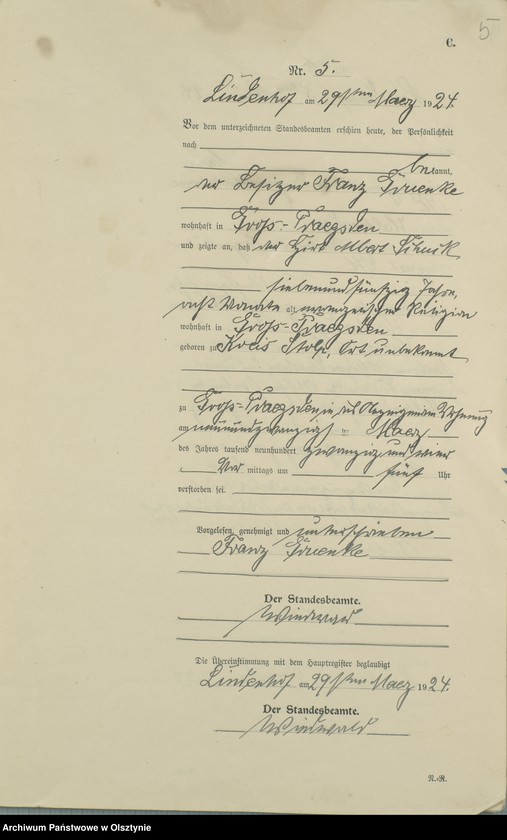 5
C.
Nr. 5.
Lindenhof am 29sten Maerz 1924.
Vor dem unterzeichneten Standesbeamten erschien heute, der Persönlichkeit
nach
bekannt,
der Besitzer Franz
wohnhaft in Groß-Praegsden
und zeigte an, daß der Hirt Albert
siebenundfünfzig Jahre,
acht Monate alt, evangelischer Religion
wohnhaft in Groß-Praegsden
geboren zu Kreis Stolp, Ort unbekannt
zu Groß-Praegsden in Wohnung
am neunundzwanzigsten Maerz
des Jahres tausend neunhundert zwanzig und vier
Vor mittags um fünf Uhr
verstorben sei.
Vorgelesen, genehmigt und unterschrieben
Franz
Der Standesbeamte.
Die Übereinstimmung mit dem Hauptregister beglaubigt
Lindenhof am 29sten Maerz 1924.
Der Standesbeamte.
N.-R.
Archiwum Państwowe w Olsztynie